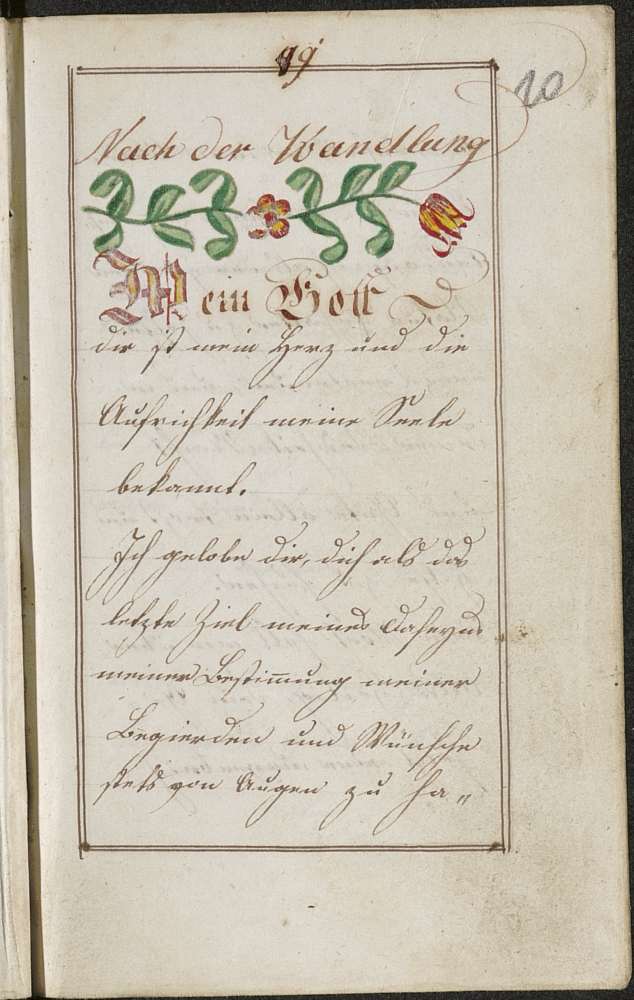 19
10
Nach der Wandlung
Mein Gott
dir ist mein Herz und die
Aufrichtkeit meine Seele
bekannt.
Ich gelobe dir, dich als das
letzte Ziel meines Daseyns
meiner Bestimung meiner
Begierden und Wünsche
stets von Augen zu ha„